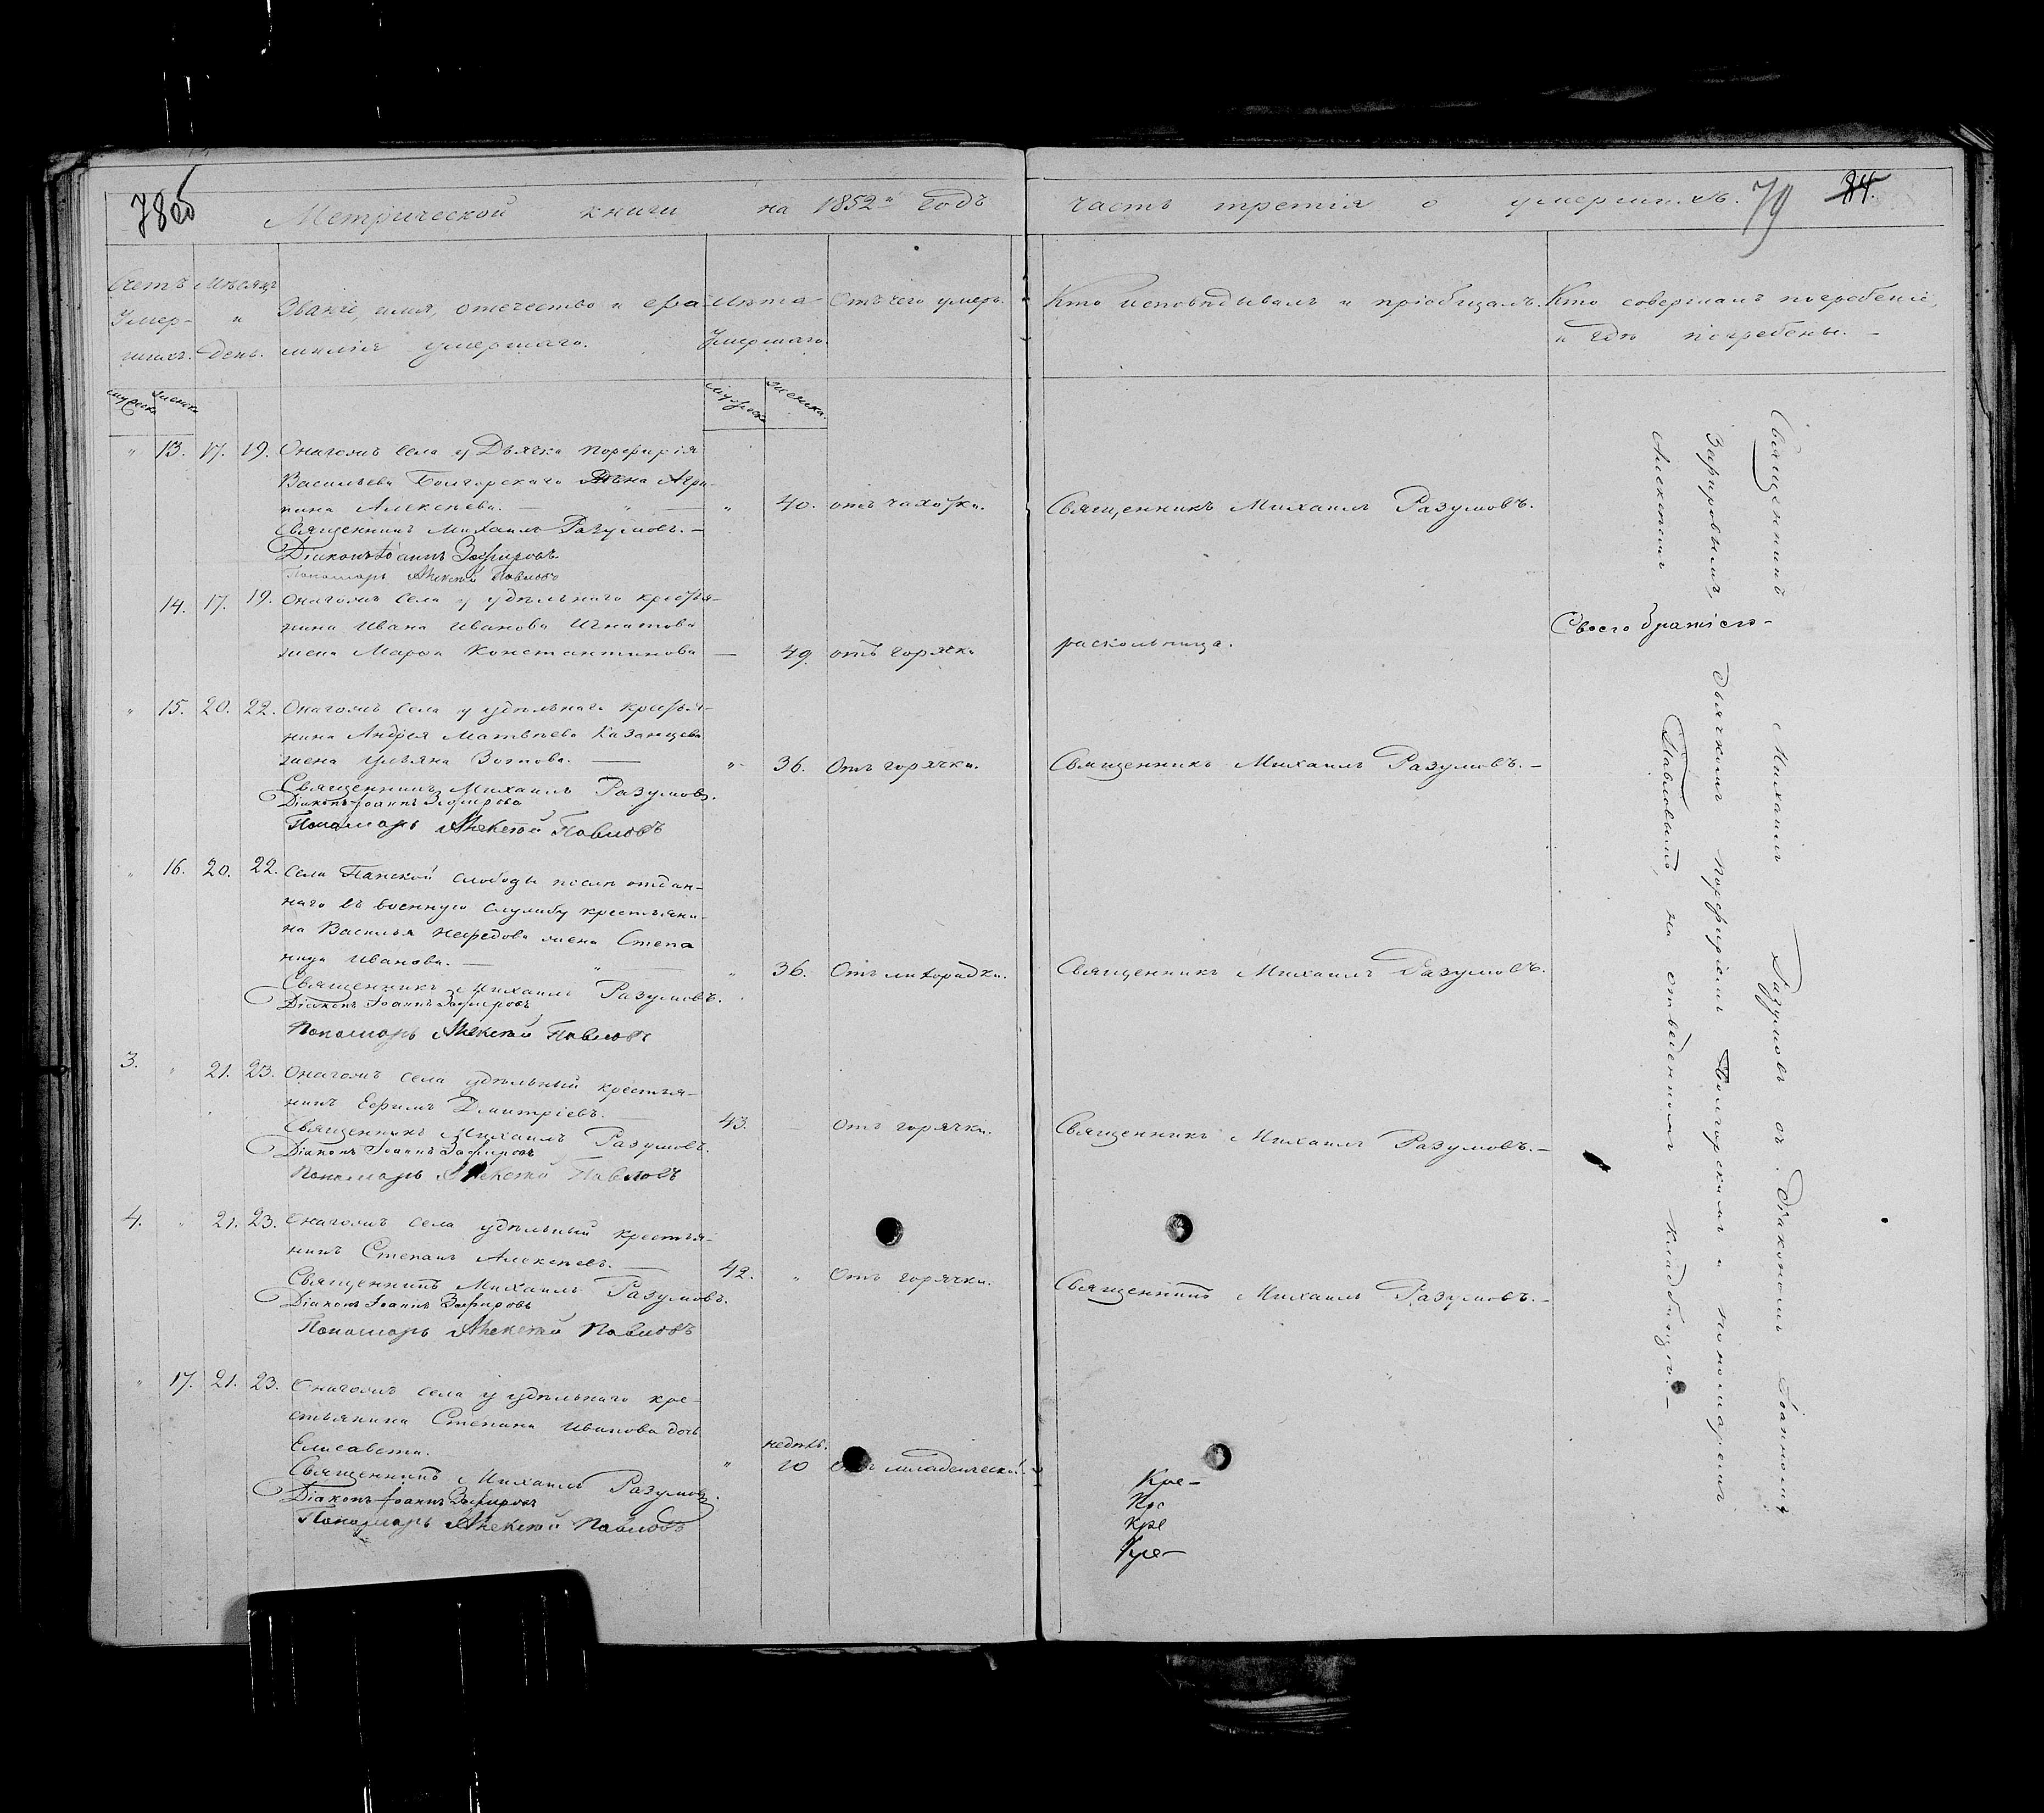 78об
Метрической книги на 1852й годъ
часть третія о умершихъ.
79
84.
Счетъ Умер- шихъ.
Мѣсяцъ и день.
Званіе, имя, отечество и фа-
милія умершаго.
Лѣта
Умершаго.
Отъ чего умеръ.
Кто исповѣдывалъ и пріобщалъ.
Кто совершалъ погребеніе,
и гдѣ погребены.
мужеска женска
мужеска женска.
" 13. 17. 19. Онагожъ села у Дьячка Порфирія
Васильева Болгорскаго Жена Агри-
пина Алексѣева. " 40. отъ чахотки. Священникъ Михаилъ Разумовъ.
Священникъ Михаилъ Разумовъ.
Діаконъ Іоаннъ Зефировъ
Пономарь Алексѣй Павловъ
14. 17. 19. Онагожъ села у удѣльнаго кресть-
янина Ивана Иванова Игнатова
жена Марѳа Константинова — 49. отъ горячки раскольница.
Своего братіею
" 15. 20. 22. Онагожъ села у удѣльнаго кресть-
янина Андрея Матвѣева Казанцева
жена Ульяна Зотова. " 36. Отъ горячки. Священникъ Михаилъ Разумовъ.
Священникъ Михаилъ Разумовъ.
Діаконъ Іоаннъ Зефировъ
Пономарь Алексѣй Павловъ
" 16. 20. 22. Села Панской слободы послѣ отдан-
наго въ военную службу крестьяни-
на Василья Нефедова жена Степа
нида Иванова. " 36. Отъ лихорадки. Священникъ Михаилъ Разумовъ.
Священникъ Михаилъ Разумовъ.
Діаконъ Іоаннъ Зефировъ
Пономарь Алексѣй Павловъ
3. " 21. 23. Онагожъ села удѣльный крестья-
нинъ Ефимъ Дмитріевъ. 43. Отъ горячки. Священникъ Михаилъ Разумовъ.
Священникъ Михаилъ Разумовъ.
Діаконъ Іоаннъ Зефировъ
Пономарь Алексѣй Павловъ
4. " 21. 23. Онагожъ села удѣльный крестья-
нинъ Степанъ Алексѣевъ. 42. " Отъ горячки. Священникъ Михаилъ Разумовъ.
Священникъ Михаилъ Разумовъ.
Діаконъ Іоаннъ Зефировъ
Пономарь Алексѣй Павловъ
" 17. 21. 23. Онагожъ села у удѣльнаго кре-
стьянина Степана Иванова дочь
Елисавета. " недѣль. 10 Отъ младенческой
Священникъ Михаилъ Разумовъ.
Діаконъ Іоаннъ Зефировъ
Пономарь Алексѣй Павловъ
Кре-
Кре
кре
Кре-
Священникъ Михаилъ Разумовъ съ Діакономъ Іоанномъ
Зефировымъ, дьячкомъ Порфиріемъ Болгорскимъ и пономаремъ
Алексѣемъ Павловымъ, на отведенномъ кладбищѣ.